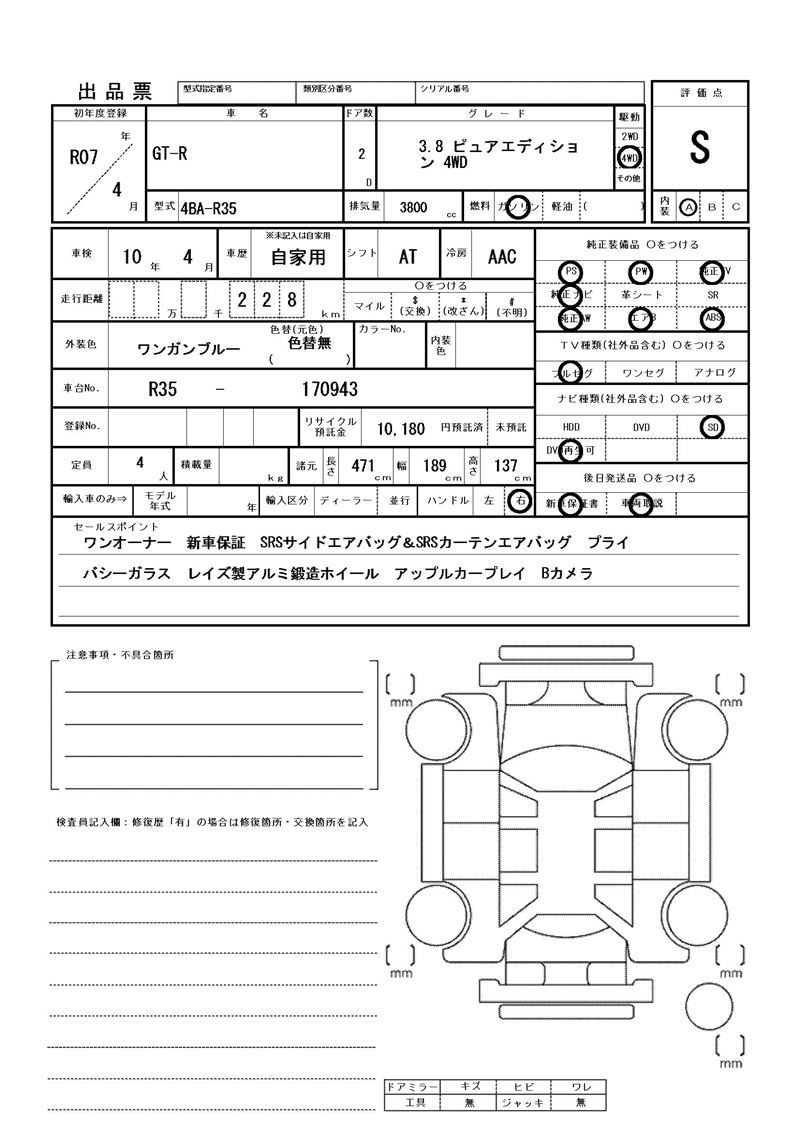 出品票
型式指定番号 類別区分番号 シリアル番号
評価点
初年度登録 車名 ドア数 グレード 駆動
R07 年 4 月
GT-R
2 D
3.8 ピュアエディショ
ン 4WD
2WD
4WD
その他
S
型式 4BA-R35 排気量 3800 cc 燃料 ガソリン 軽油 ( )
内装 A B C
車検 10 年 4 月 車歴 ※未記入は自家用 自家用 シフト AT 冷房 AAC
純正装備品 ○をつける
PS PW 純正TV
純正ナビ 革シート SR
純正AW エアB ABS
走行距離 万 千 228 km
○をつける
マイル $(交換) *(改ざん) #(不明)
TV種類(社外品含む) ○をつける
フルセグ ワンセグ アナログ
外装色 ワンガンブルー 色替(元色) 色替無 ( ) カラーNo. 内装色
車台No. R35 - 170943
ナビ種類(社外品含む) ○をつける
HDD DVD SD
DVD再生可
登録No. リサイクル預託金 10,180 円預託済 未預託
定員 4 人 積載量 kg 諸元 長さ 471 cm 幅 189 cm 高さ 137 cm
後日発送品 ○をつける
新車保証書 車両取説
輸入車のみ⇒ モデル年式 年 輸入区分 ディーラー 並行 ハンドル 左 右
セールスポイント
ワンオーナー 新車保証 SRSサイドエアバッグ&SRSカーテンエアバッグ プライ
バシーガラス レイズ製アルミ鍛造ホイール アップルカープレイ Bカメラ
注意事項・不具合箇所
[ ] mm
[ ] mm
検査員記入欄:修復歴「有」の場合は修復箇所・交換箇所を記入
[ ] mm
[ ] mm
[ ] mm
ドアミラー キズ ヒビ ワレ
工具 無 ジャッキ 無